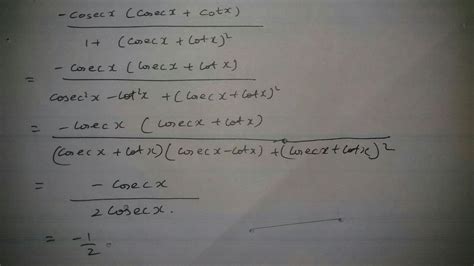 -cosec x (cosec x + cotx)
1 + (cosec x + cotx)²
= -cosec x (cosec x + cot x)
cosec²x - cot²x + (cosec x + cotx)²
= -cosec x (cosec x + cotx)
(cosec x + cot x) (cosec x - cotx) + (cosec x + cot x)²
= -cosec x
2 cosec x.
= -1/2.